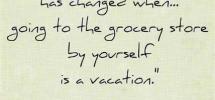 has changed when...
going to the grocery store
by yourself
is a vacation."